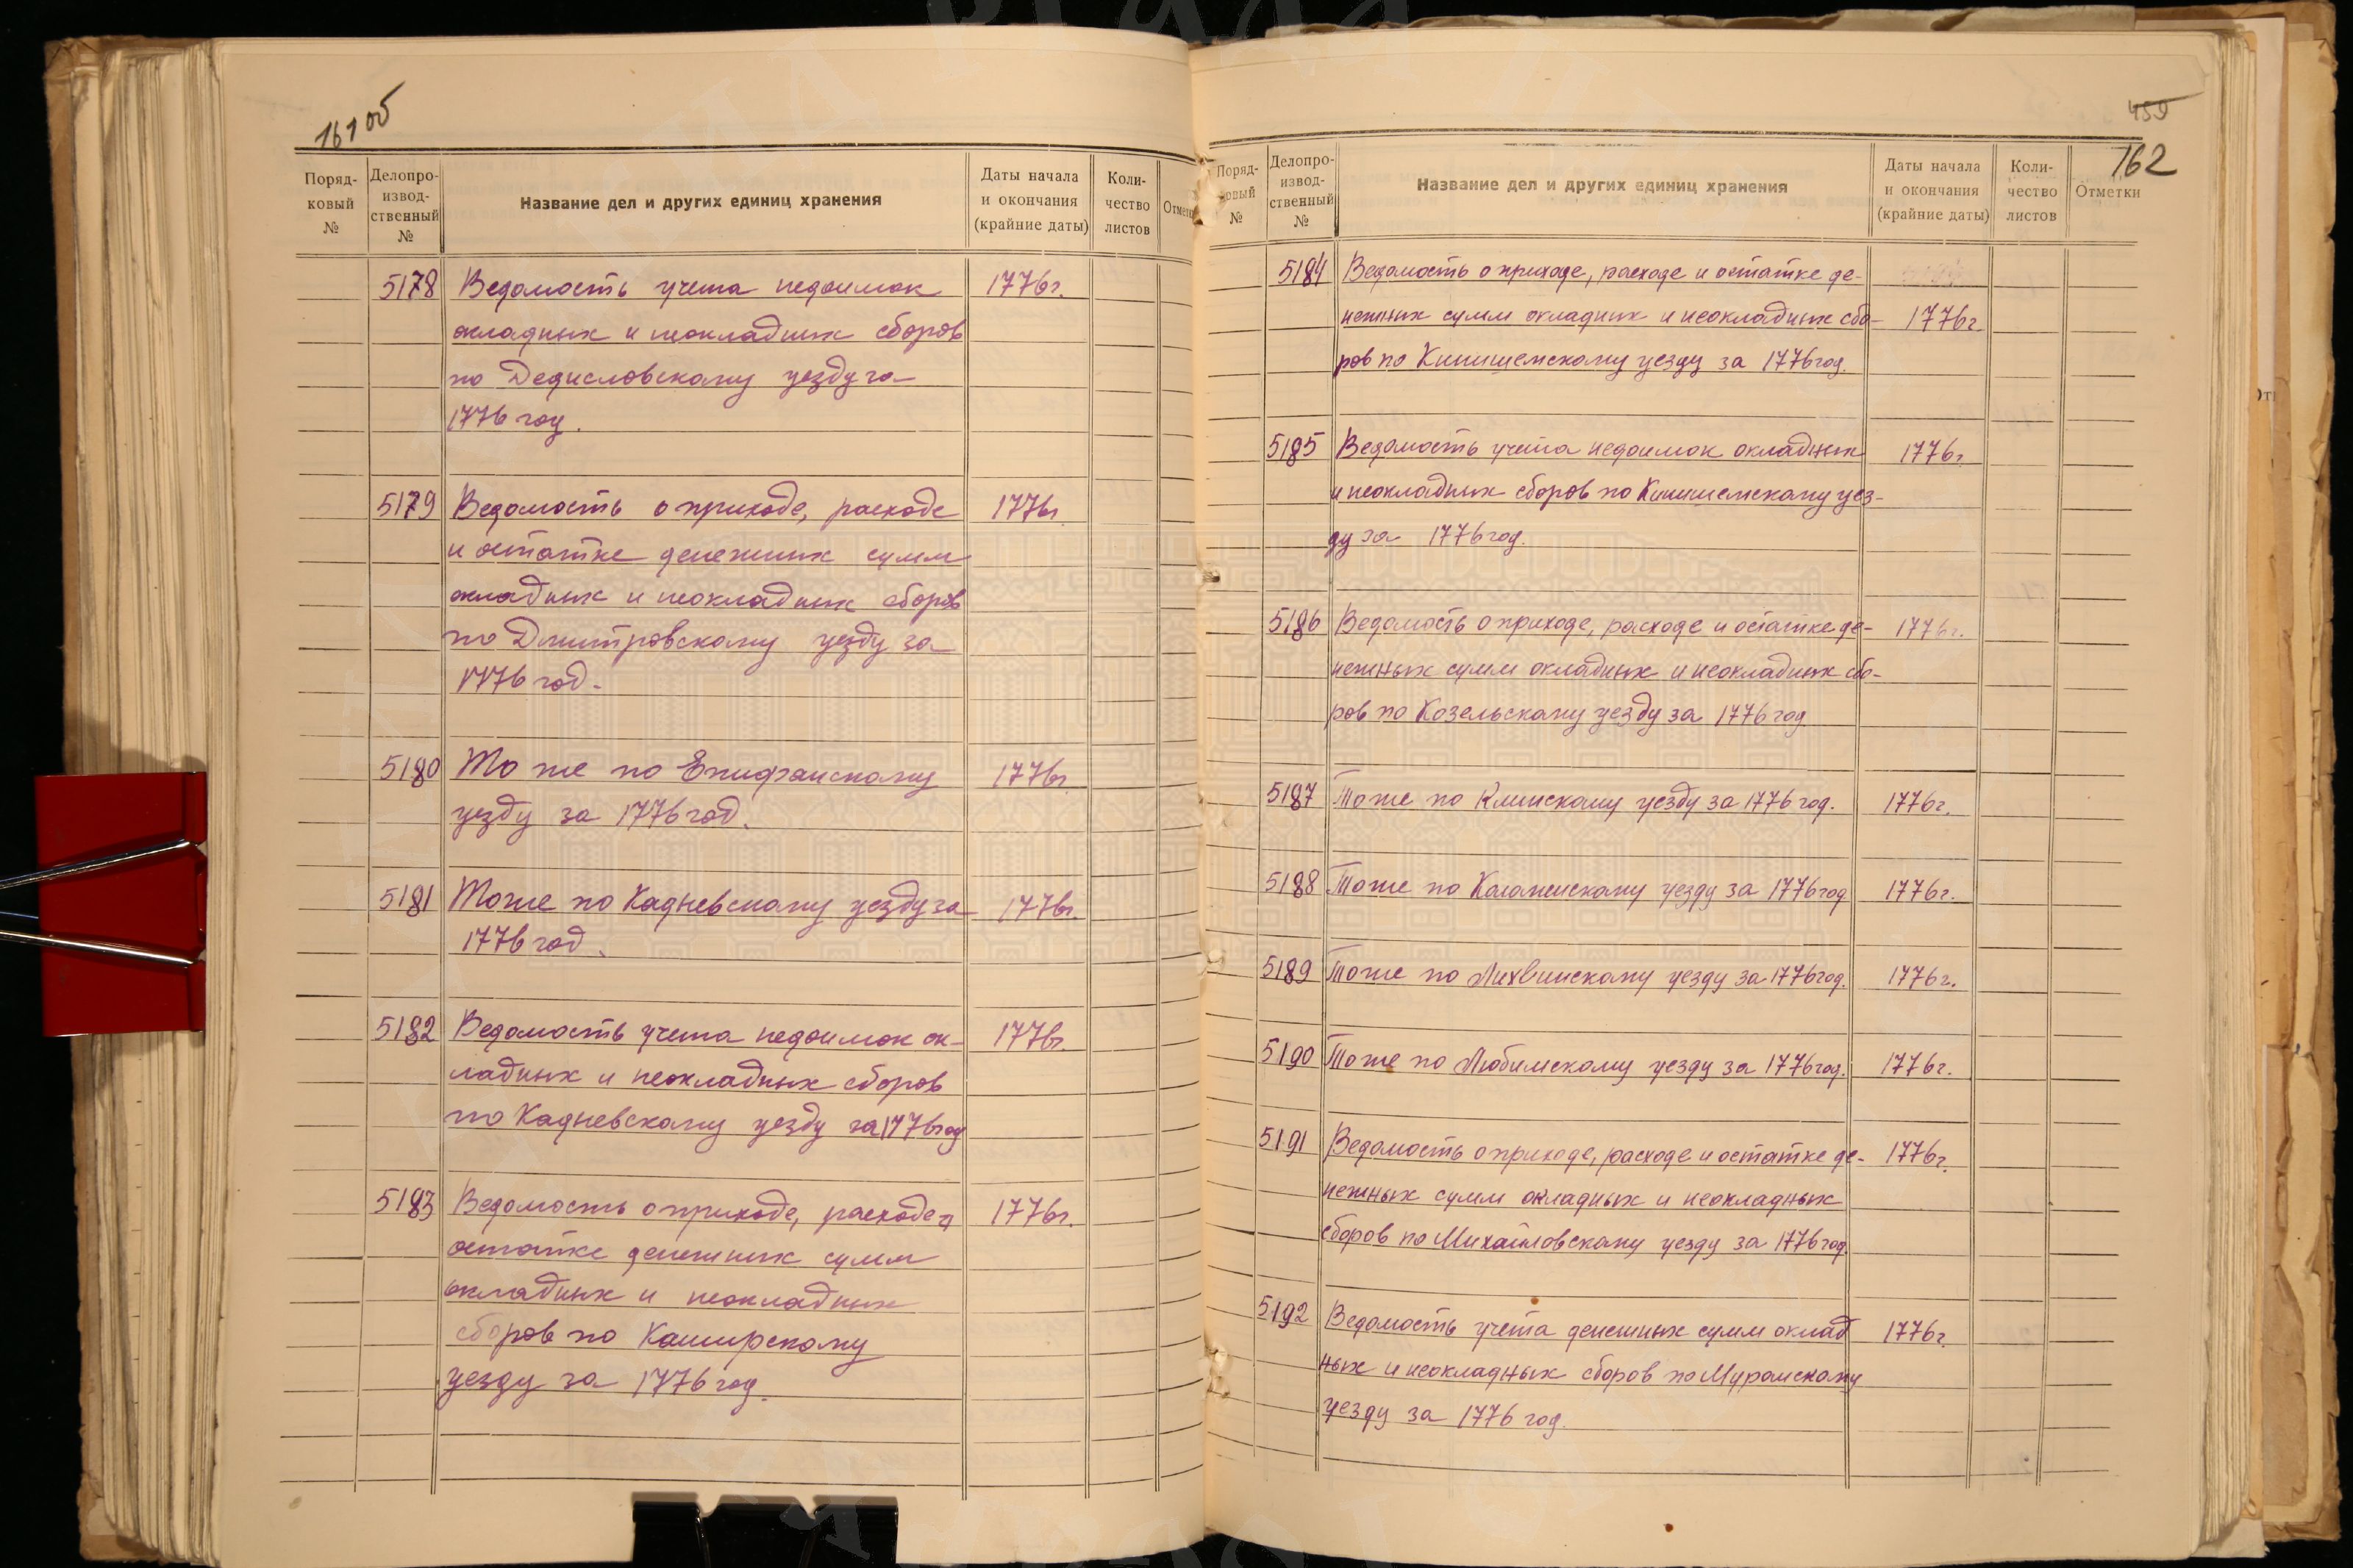 161 об
Поряд-
ковый
№
Делопро-
извод-
ственный
№
Название дел и других единиц хранения
Даты начала
и окончания
(крайние даты)
Коли-
чество
листов
Отметки
5178 Ведомость учета недоимок 1776г.
окладных и неокладных сборов
по Дедиловскому уезду за
1776 год.
5179 Ведомость о приходе, расходе 1776г.
и остатке денежных сумм
окладных и неокладных сборов
по Дмитровскому уезду за
1776 год.
5180 То же по Епифанскому 1776г.
уезду за 1776 год.
5181 То же по Кадневскому уезду за 1776г.
1776 год.
5182 Ведомость учета недоимок ок- 1776г.
ладных и неокладных сборов
по Кадневскому уезду за 1776 год
5183 Ведомость о приходе, расходе и 1776г.
остатке денежных сумм
окладных и неокладных
сборов по Каширскому
уезду за 1776 год.
459
162
Поряд-
ковый
№
Делопро-
извод-
ственный
№
Название дел и других единиц хранения
Даты начала
и окончания
(крайние даты)
Коли-
чество
листов
Отметки
5184 Ведомость о приходе, расходе и остатке де-
нежных сумм окладных и неокладных сбо- 1776г
ров по Кинишемскому уезду за 1776 год.
5185 Ведомость учета недоимок окладных 1776г.
и неокладных сборов по Кинишемскому уез-
ду за 1776 год.
5186 Ведомость о приходе, расходе и остатке де- 1776г.
нежных сумм окладных и неокладных сбо-
ров по Козельскому уезду за 1776 год
5187 То же по Клинскому уезду за 1776 год. 1776г.
5188 То же по Коломенскому уезду за 1776 год 1776г.
5189 То же по Лихвинскому уезду за 1776 год. 1776г.
5190 То же по Любимскому уезду за 1776 год. 1776г.
5191 Ведомость о приходе, расходе и остатке де- 1776г.
нежных сумм окладных и неокладных
сборов по Михайловскому уезду за 1776 год.
5192 Ведомость учета денежных сумм оклад 1776г.
ных и неокладных сборов по Муромскому
уезду за 1776 год.